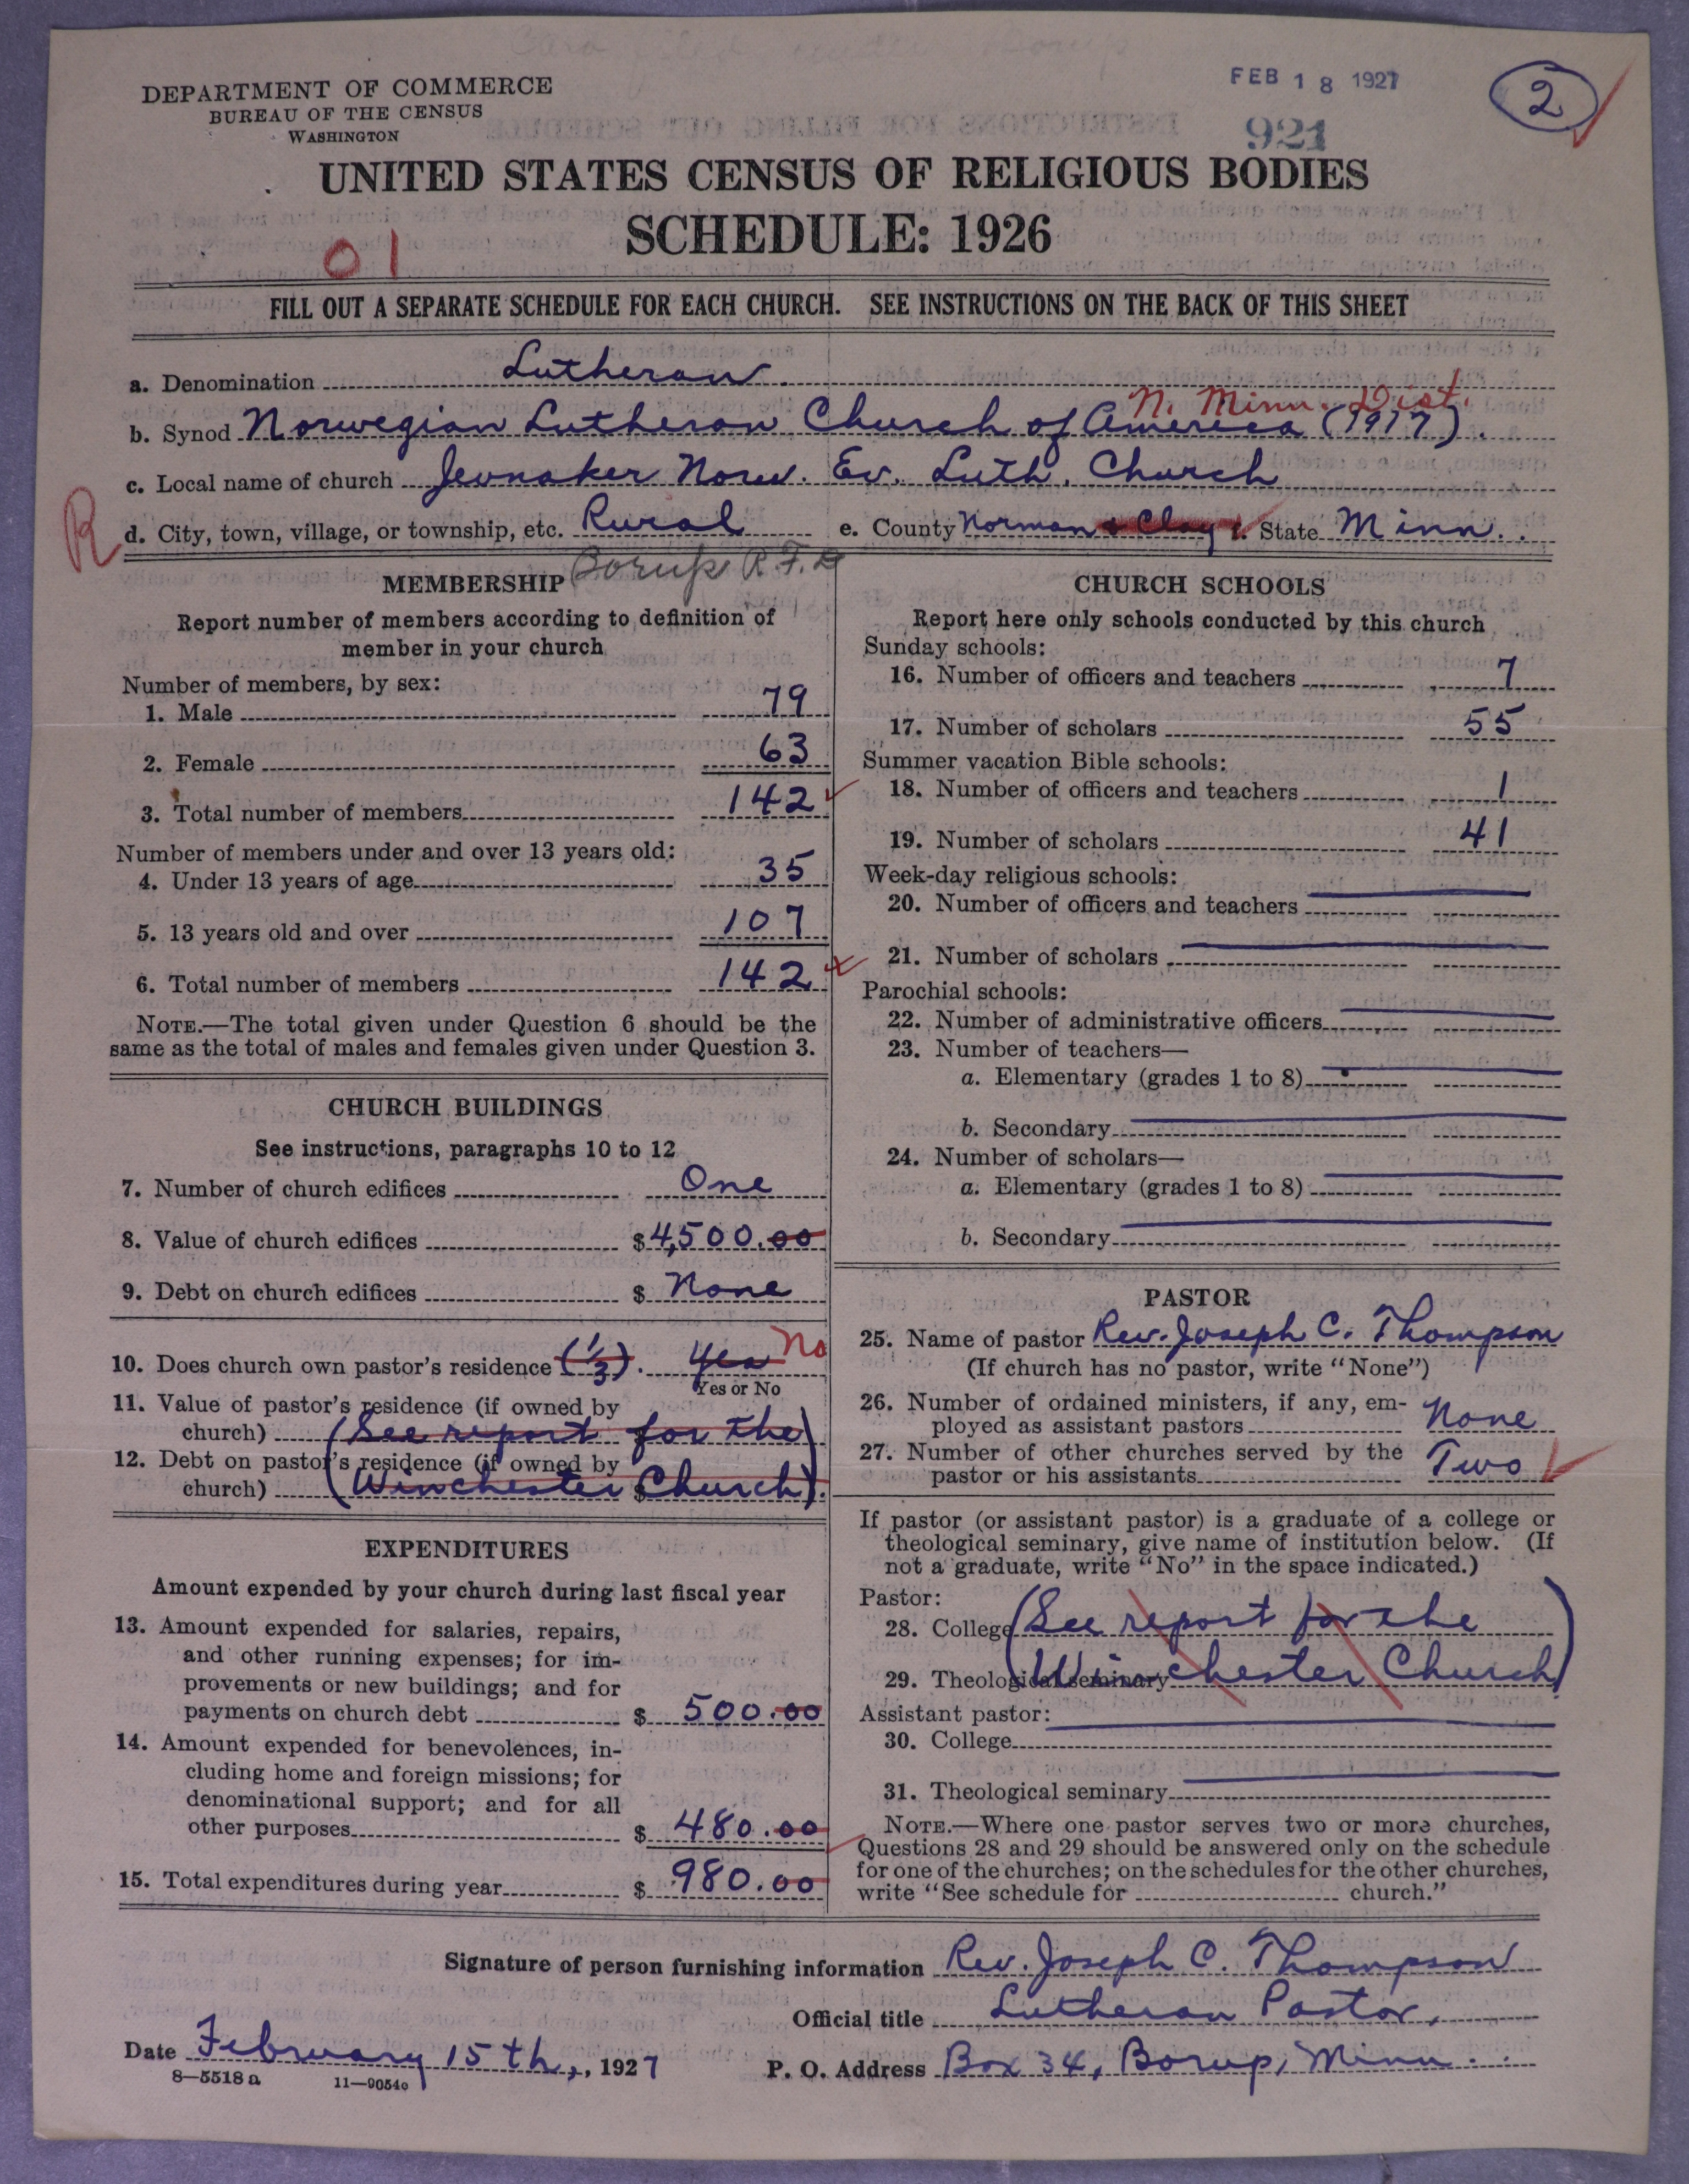 DEPARTMENT OF COMMERCE
BUREAU OF THE CENSUS
WASHINGTON
FEB 18 1927
921
2
UNITED STATES CENSUS OF RELIGIOUS BODIES
SCHEDULE: 1926
01
FILL OUT A SEPARATE SCHEDULE FOR EACH CHURCH. SEE INSTRUCTIONS ON THE BACK OF THIS SHEET
a. Denomination Lutheran.
N. Minn. Dist.
b. Synod Norwegian Lutheran Church of America (1917).
c. Local name of church Jevnaker Norw. Ev. Luth. Church
R
d. City, town, village, or township, etc. Rural e. County Norman & Clay f. State Minn.
Borup R.F.D
MEMBERSHIP
Report number of members according to definition of
member in your church
Number of members, by sex:
1. Male 79
2. Female 63
3. Total number of members 142
Number of members under and over 13 years old:
4. Under 13 years of age 35
5. 13 years old and over 107
6. Total number of members 142
NOTE.—The total given under Question 6 should be the
same as the total of males and females given under Question 3.
CHURCH BUILDINGS
See instructions, paragraphs 10 to 12
7. Number of church edifices One
8. Value of church edifices $4,500.00
9. Debt on church edifices $ None
10. Does church own pastor's residence (1/3). Yes No
Yes or No
11. Value of pastor's residence (if owned by
church) (See report for the
12. Debt on pastor's residence (if owned by
church) Winchester $ Church).
EXPENDITURES
Amount expended by your church during last fiscal year
13. Amount expended for salaries, repairs,
and other running expenses; for im-
provements or new buildings; and for
payments on church debt $ 500.00
14. Amount expended for benevolences, in-
cluding home and foreign missions; for
denominational support; and for all
other purposes $ 480.00
15. Total expenditures during year $ 980.00
CHURCH SCHOOLS
Report here only schools conducted by this church
Sunday schools:
16. Number of officers and teachers 7
17. Number of scholars 55
Summer vacation Bible schools:
18. Number of officers and teachers 1
19. Number of scholars 41
Week-day religious schools:
20. Number of officers and teachers
21. Number of scholars
Parochial schools:
22. Number of administrative officers
23. Number of teachers—
a. Elementary (grades 1 to 8)
b. Secondary
24. Number of scholars—
a. Elementary (grades 1 to 8)
b. Secondary
PASTOR
25. Name of pastor Rev. Joseph C. Thompson
(If church has no pastor, write "None")
26. Number of ordained ministers, if any, em-
ployed as assistant pastors None
27. Number of other churches served by the
pastor or his assistants Two
If pastor (or assistant pastor) is a graduate of a college or
theological seminary, give name of institution below. (If
not a graduate, write "No" in the space indicated.)
Pastor:
28. College (See report for the
29. Theological seminary Winchester Church)
Assistant pastor:
30. College
31. Theological seminary
NOTE.—Where one pastor serves two or more churches,
Questions 28 and 29 should be answered only on the schedule
for one of the churches; on the schedules for the other churches,
write "See schedule for church."
Signature of person furnishing information Rev. Joseph C. Thompson
Official title Lutheran Pastor.
Date February 15th, 1927 P. O. Address Box 34, Borup, Minn.
8—5518 a 11—9054c